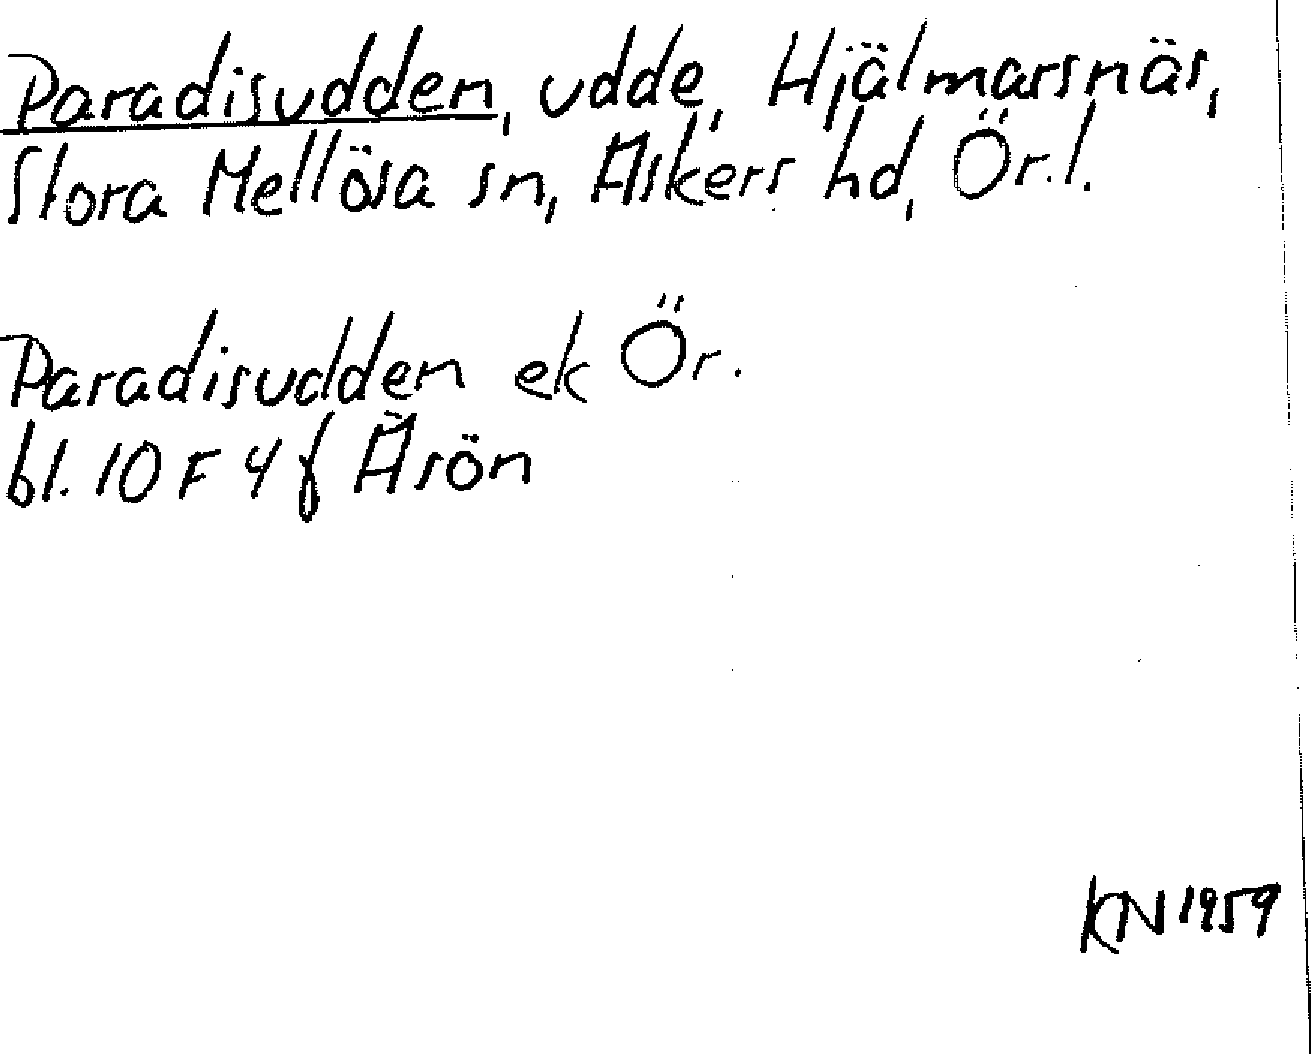 Paradisudden, udde, Hjälmarsnäs,
Stora Mellösa sn, Askers hd, Ör.l.
Paradisudden ek Ör.
bl. 10 F 4 f Åsön
KN 1959